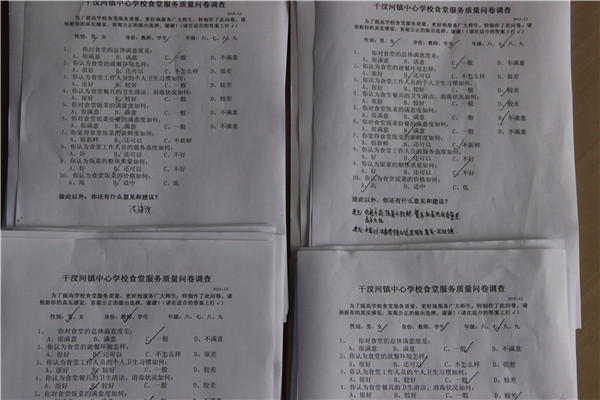 干汉河镇中心学校食堂服务质量问卷调查
2015-12
为了提高学校食堂服务质量,更好地服务广大师生,特制作了此问卷,请
根据你的真实感受,客观公正的做出选择,谢谢!(请在适合的答案上打√)
性别:男、女 身份:教师、学生 年级:六、七、八、九
1、 你对食堂的总体满意度是:
A、很满意 B、满意 C、一般 D、不满意
2、你认为食堂的就餐环境怎样:
A、很好 B、还可以 C、不怎么样 D、很差
3、你认为食堂工作人员的个人卫生习惯如何:
A、很好 B、较好 C、一般 D、较差
4、你认为食堂餐具的卫生清洁、消毒状况如何:
A、很好 B、较好 C、一般 D、较差
5、你对食堂饭菜的口味如何:
A、很满意 B、满意 C、一般 D、不满意
6、你对食堂饭菜份量的满意度如何:
A、很满意 B、满意 C、一般 D、不满意
7、你觉得食堂饭菜的新鲜度如何:
A、很新鲜 B、还可以 C、不新鲜
8、你认为食堂工作人员的服务态度如何:
A、好 B、还可以 C、不好
9、你认为饭菜的整体质量如何:
A、好 B、还可以 C、不好
10、你认为食堂饭菜的价格如何:
A、高 B、适中 C、低
除此以外,你还有什么意见和建议?
没有
干汉河镇中心学校食堂服务质量问卷调查
2015-12
为了提高学校食堂服务质量,更好地服务广大师生,特制作了此问卷,请
根据你的真实感受,客观公正的做出选择,谢谢!(请在适合的答案上打√)
性别:男、女 身份:教师、学生 年级:六、七、八、九
1、 你对食堂的总体满意度是:
A、很满意 B、满意 C、一般 D、不满意
2、你认为食堂的就餐环境怎样:
A、很好 B、还可以 C、不怎么样 D、很差
3、你认为食堂工作人员的个人卫生习惯如何:
A、很好 B、较好 C、一般 D、较差
4、你认为食堂餐具的卫生清洁、消毒状况如何:
A、很好 B、较好 C、一般 D、较差
5、你对食堂饭菜的口味如何:
A、很满意 B、满意 C、一般 D、不满意
6、你对食堂饭菜份量的满意度如何:
A、很满意 B、满意 C、一般 D、不满意
7、你觉得食堂饭菜的新鲜度如何:
A、很新鲜 B、还可以 C、不新鲜
8、你认为食堂工作人员的服务态度如何:
A、好 B、还可以 C、不好
9、你认为饭菜的整体质量如何:
A、好 B、还可以 C、不好
10、你认为食堂饭菜的价格如何:
A、高 B、适中 C、低
除此以外,你还有什么意见和建议?
干汉河镇中心学校食堂服务质量问卷调查
2015-12
为了提高学校食堂服务质量,更好地服务广大师生,特制作了此问卷,请
根据你的真实感受,客观公正的做出选择,谢谢!(请在适合的答案上打√)
性别:男、女 身份:教师、学生 年级:六、七、八、九
1、 你对食堂的总体满意度是:
A、很满意 B、满意 C、一般 D、不满意
2、你认为食堂的就餐环境怎样:
A、很好 B、还可以 C、不怎么样 D、很差
3、你认为食堂工作人员的个人卫生习惯如何:
A、很好 B、较好 C、一般 D、较差
4、你认为食堂餐具的卫生清洁、消毒状况如何:
A、很好 B、较好 C、一般 D、较差
干汉河镇中心学校食堂服务质量问卷调查
2015-12
为了提高学校食堂服务质量,更好地服务广大师生,特制作了此问卷,请
根据你的真实感受,客观公正的做出选择,谢谢!(请在适合的答案上打√)
性别:男、女 身份:教师、学生 年级:六、七、八、九
1、 你对食堂的总体满意度是:
A、很满意 B、满意 C、一般 D、不满意
2、你认为食堂的就餐环境怎样:
A、很好 B、还可以 C、不怎么样 D、很差
3、你认为食堂工作人员的个人卫生习惯如何:
A、很好 B、较好 C、一般 D、较差
4、你认为食堂餐具的卫生清洁、消毒状况如何: